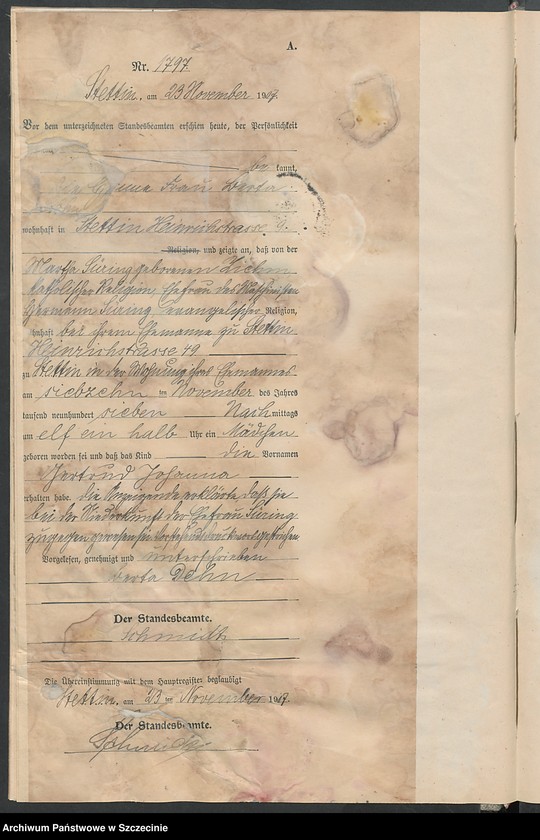 A.
Nr. 1797
Stettin, am 23 November 1907.
Vor dem unterzeichneten Standesbeamten erschien heute, der Persönlichkeit
be kannt,
die Hebamme Frau Berta
wohnhaft in Stettin Heinrichstrasse
Religion, und zeigte an, daß von der
Martha Süring geborenen
katholischer Religion, Ehefrau des Maschinisten
Hermann Süring evangelischer Religion,
wohnhaft bei ihrem Ehemanne zu Stettin
Heinrichstrasse 49
zu Stettin in der Wohnung ihres Ehemannes
am siebzehn ten November des Jahres
tausend neunhundert sieben Nachmittags
um elf ein halb Uhr ein Mädchen
geboren worden sei und daß das Kind die Vornamen
Gertrud Johanna
erhalten habe. Die Anzeigende erklärte, daß sie
bei der Niederkunft der Ehefrau Süring
zugegen gewesen sei. Vorstehend Druckworte gestrichen
Vorgelesen, genehmigt und unterschrieben
Berta Dehn
Der Standesbeamte.
Schmidt
Die Übereinstimmung mit dem Hauptregister beglaubigt
Stettin, am 23 ten November 1907.
Der Standesbeamte.
Archiwum Państwowe w Szczecinie